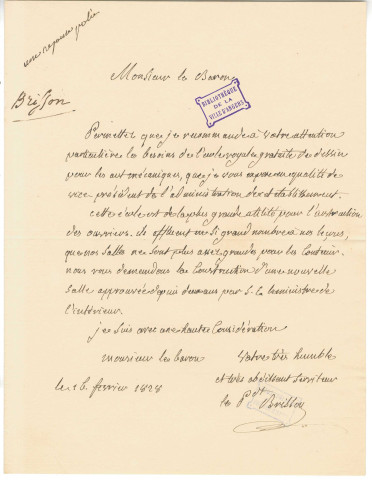 une reponse polie
Monsieur le Baron
Brisson
BIBLIOTHÈQUE
DE LA
VILLE D'ANGERS
Permettez que je recommande à votre attention
particulière les besoins de l'école royale gratuite de dessin
pour les arts mécaniques, que je vous expose en qualité de
vice président de l'administration de cet établissement.
cette école est de la plus grande utilité pour l'instruction
des ouvriers. ils affluent en si grand nombre à nos leçons,
que nos salles ne sont plus assez grandes pour les contenir.
nous vous demandons la construction d'une nouvelle
salle approuvée depuis deux ans par S. E. le ministre de
l'intérieur.
je suis avec une haute considération
monsieur le baron
votre très humble
le 16 fevrier 1828
et très obéissant serviteur
le Pdt Brisson